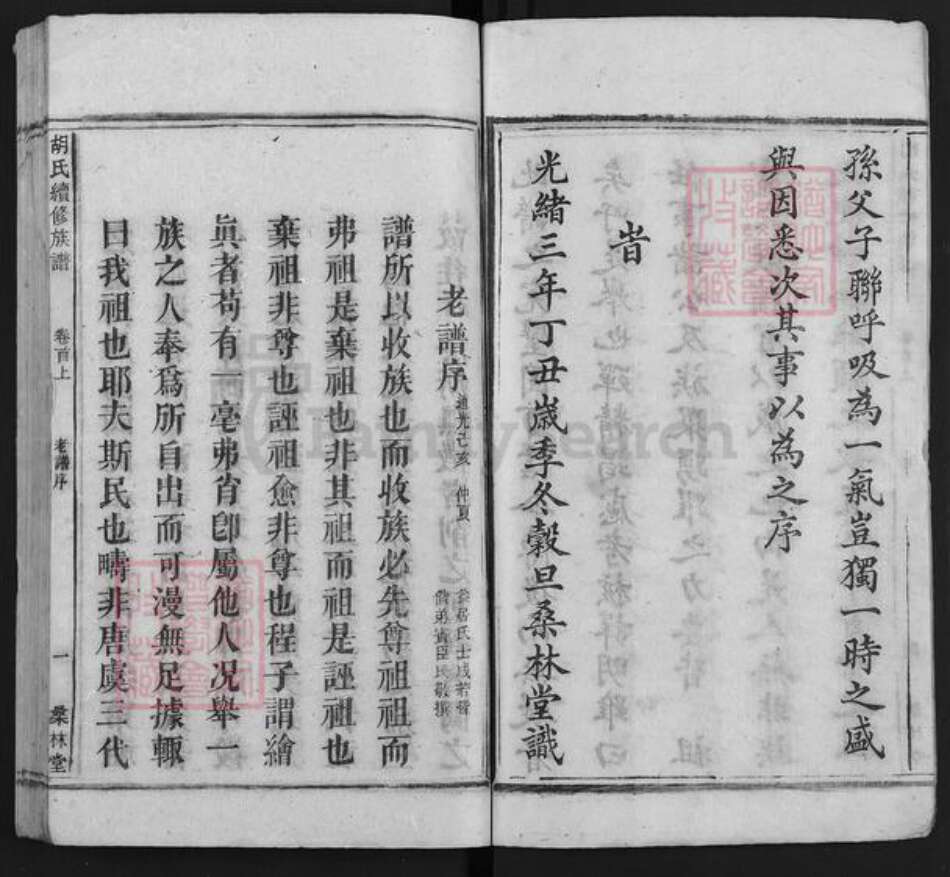 孫父子聯呼吸為一氣豈獨一時之盛
與因悉次其事以為之序
旹
光緒三年丁丑歲季冬穀旦桑林堂識
老譜序
道光己亥 仲夏
譜所以收族也而收族必先尊祖祖而
弗祖是棄祖也非其祖而祖是誣祖也
棄祖非尊也誣祖愈非尊也程子謂繪
眞者苟有一毫弗肖卽屬他人况舉一
族之人奉爲所自出而可漫無足據輒
曰我祖也耶夫斯民也疇非唐虞三代
胡氏續修族譜 卷首上 老譜序 一 桑林堂
FamilySearch